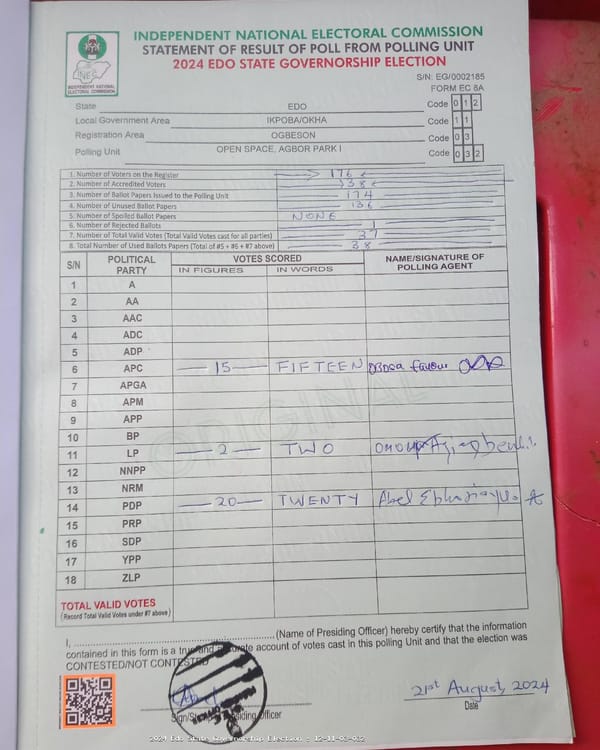 INDEPENDENT NATIONAL ELECTORAL COMMISSION
STATEMENT OF RESULT OF POLL FROM POLLING UNIT
2024 EDO STATE GOVERNORSHIP ELECTION
INEC
INDEPENDENT NATIONAL ELECTORAL COMMISSION
S/N: EG/0002185
FORM EC 8A
State EDO Code 0 1 2
Local Government Area IKPOBA/OKHA Code 1 1
Registration Area OGBESON Code 0 3
Polling Unit OPEN SPACE, AGBOR PARK I Code 0 3 2
1. Number of Voters on the Register 176
2. Number of Accredited Voters 38
3. Number of Ballot Papers Issued to the Polling Unit 174
4. Number of Unused Ballot Papers 136
5. Number of Spoiled Ballot Papers NONE
6. Number of Rejected Ballots 1
7. Number of Total Valid Votes (Total Valid Votes cast for all parties) 37
8. Total Number of Used Ballots Papers (Total of #5 + #6 + #7 above) 38
S/N POLITICAL PARTY VOTES SCORED NAME/SIGNATURE OF POLLING AGENT
IN FIGURES IN WORDS
1 A
2 AA
3 AAC
4 ADC
5 ADP
6 APC 15 FIFTEEN favour
7 APGA
8 APM
9 APP
10 BP
11 LP 2 TWO
12 NNPP
13 NRM
14 PDP 20 TWENTY Abel
15 PRP
16 SDP
17 YPP
18 ZLP
ORIGINAL
TOTAL VALID VOTES
(Record Total Valid Votes under #7 above)
I, ............(Name of Presiding Officer) hereby certify that the information
contained in this form is a true and accurate account of votes cast in this polling Unit and that the election was
CONTESTED/NOT CONTESTED
21st August, 2024
Date
Presiding Officer
2024 Edo State Governorship Election - 12-11-03-032